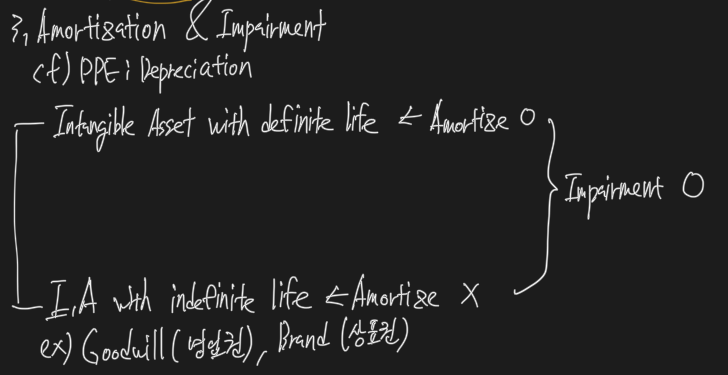 3, Amortization & Impairment
cf) PPE : Depreciation
Intangible Asset with definite life ← Amortize O
Impairment O
I.A with indefinite life ← Amortize X
ex) Goodwill (영업권), Brand (상표권)